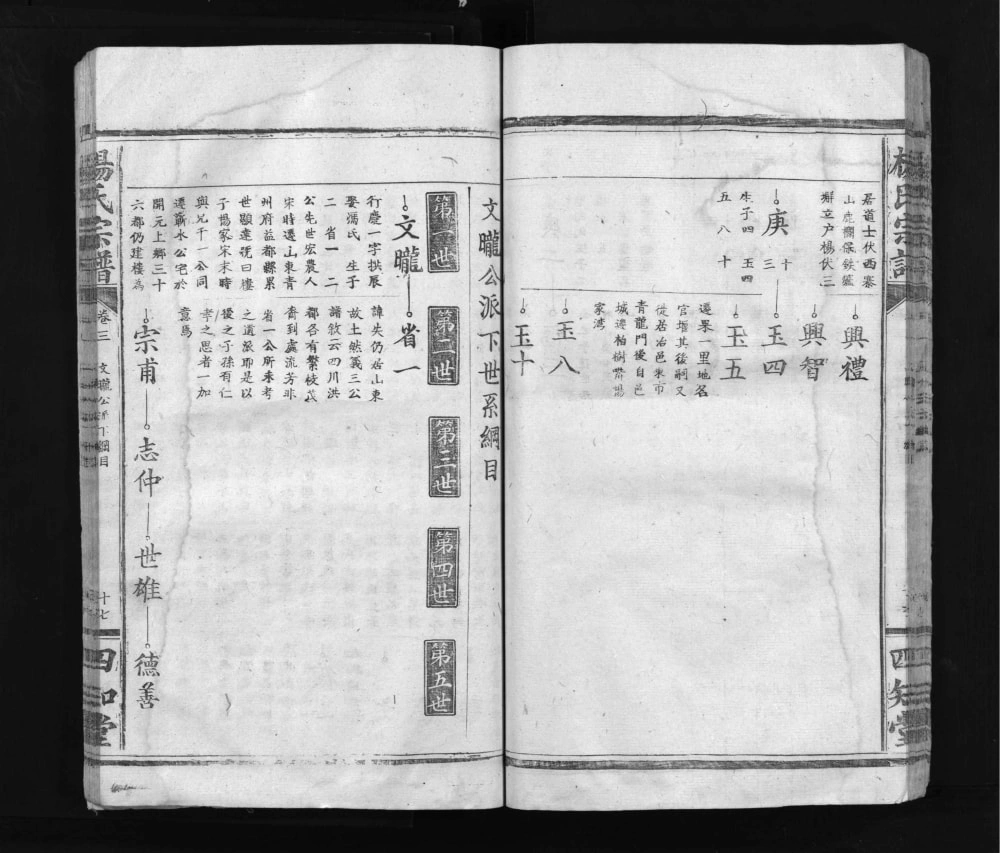 楊氏宗譜
四知堂
居道士伏西寨
戶楊伏三
庚三
十
生子四 玉四
五 八 十
興禮
興智
玉四
玉五
遷畢一里地名
其後嗣又
從居治邑東市
青龍門擾自邑
家灣
玉八
玉十
文曨公派下世系綱目
第一世
第二世
第三世
第四世
第五世
文曨
省一
行慶一字拱辰
娶濡氏 生子
二 省一 二
公先世宏農人
宋時遷山東青
州府益都縣累
世顯達號曰樓
子楊家宋末時
與兄千一公同
遷蘄水公宅於
開元上鄉三十
六都仍建樓為
諱失仍居山東
故土然義三公
譜敘云四川洪
都各有繫枝茂
裔到處流芳非
省一公所來考
之道派耶是以
後之子孫有仁
孝之思者一加
意焉
宗甫
志仲
世雄
德善
楊氏宗譜
卷三
文曨公派下綱目
十七
四知堂